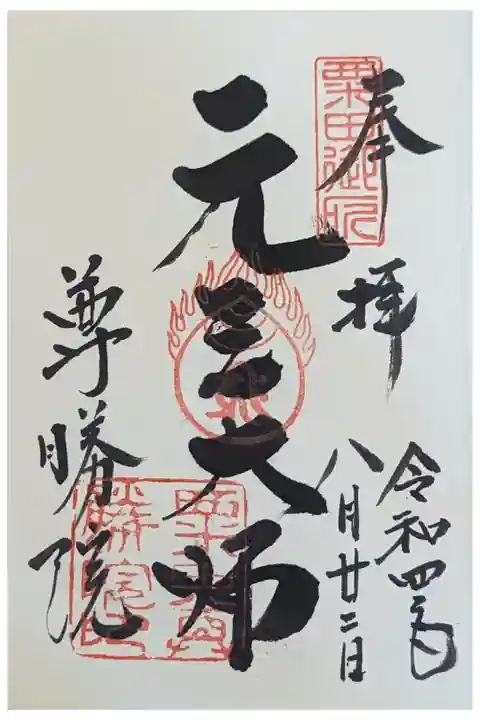 奉拝
令和四年
八月廿二日
元三大師
尊勝院
粟田御児